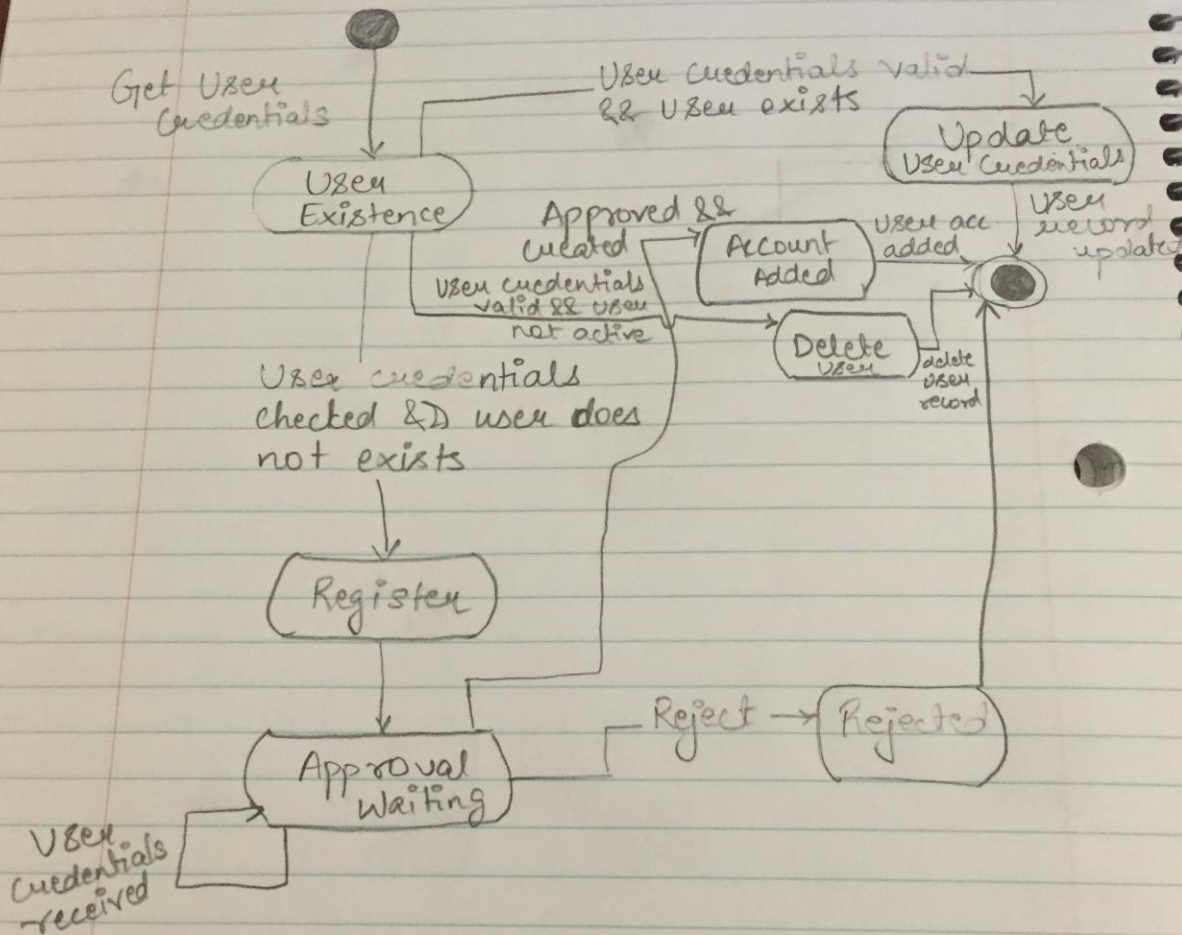 Get User
Credentials
User Credentials valid
&& User exists
Update
User Credentials
User
Existence
Approved &&
Created
Account
Added
User acc
added
User
record
updated
User credentials
valid && user
not active
Delete
User
delete
user
record
User credentials
checked && user does
not exists
Register
Approval
Waiting
Reject
Rejected
User
Credentials
received